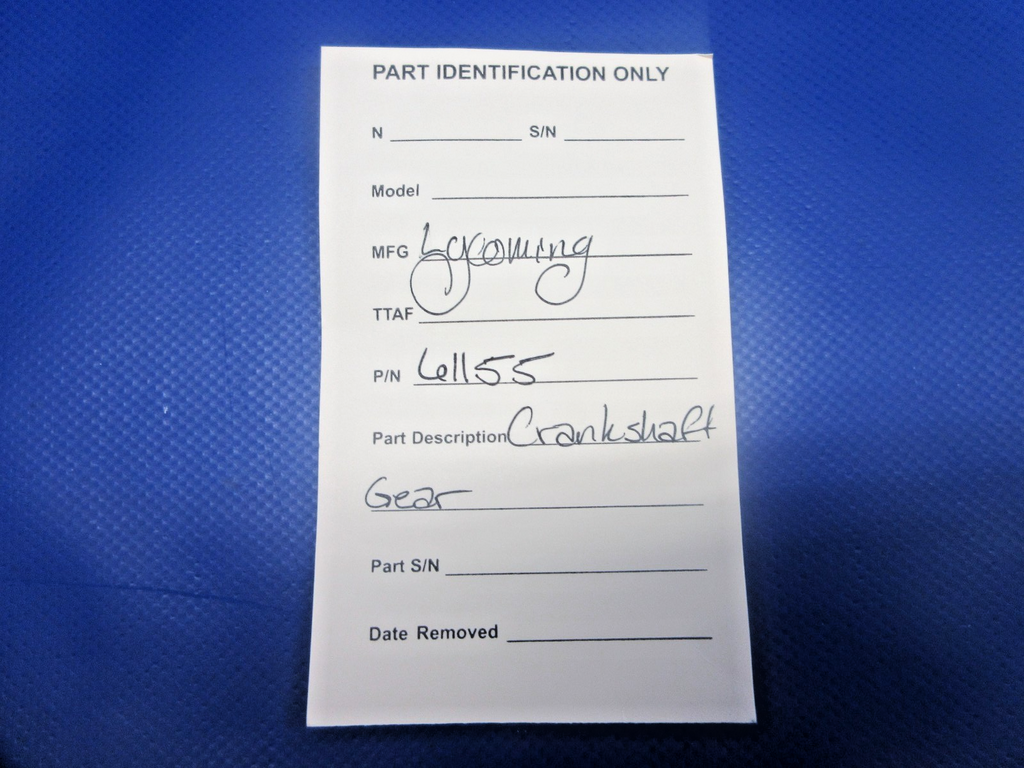 PART IDENTIFICATION ONLY
N S/N
Model
MFG Lycoming
TTAF
P/N 61155
Part Description Crankshaft
Gear
Part S/N
Date Removed